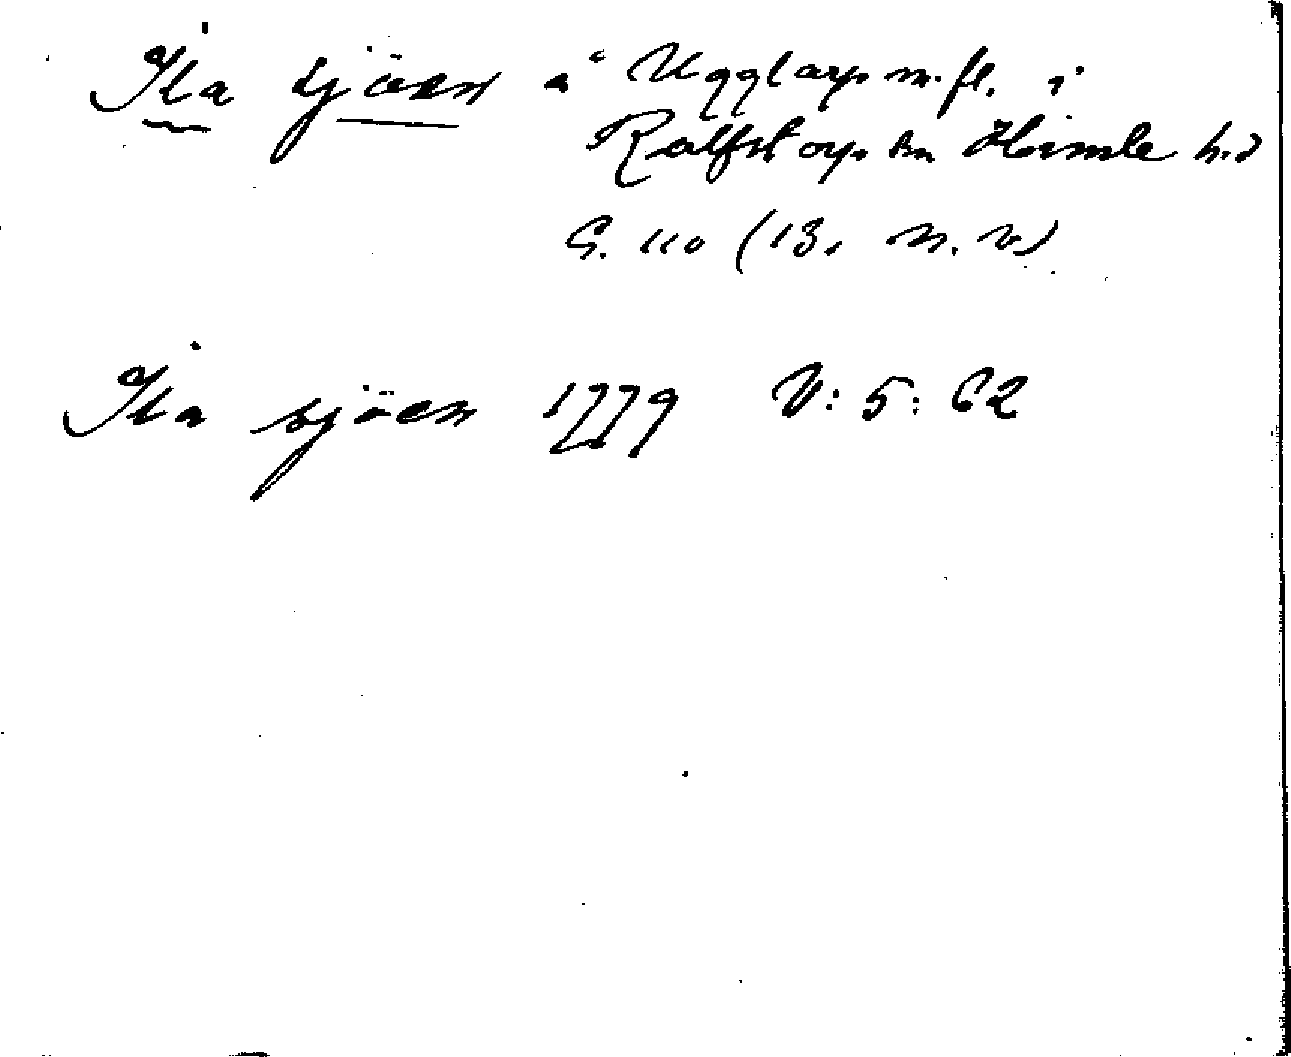 Ila sjöen å Ugglarp m.fl. i
Rolfstorp sn Himle h.d
G. 110 (13. n. v.)
Ila sjöen 1779 V: 5: 62